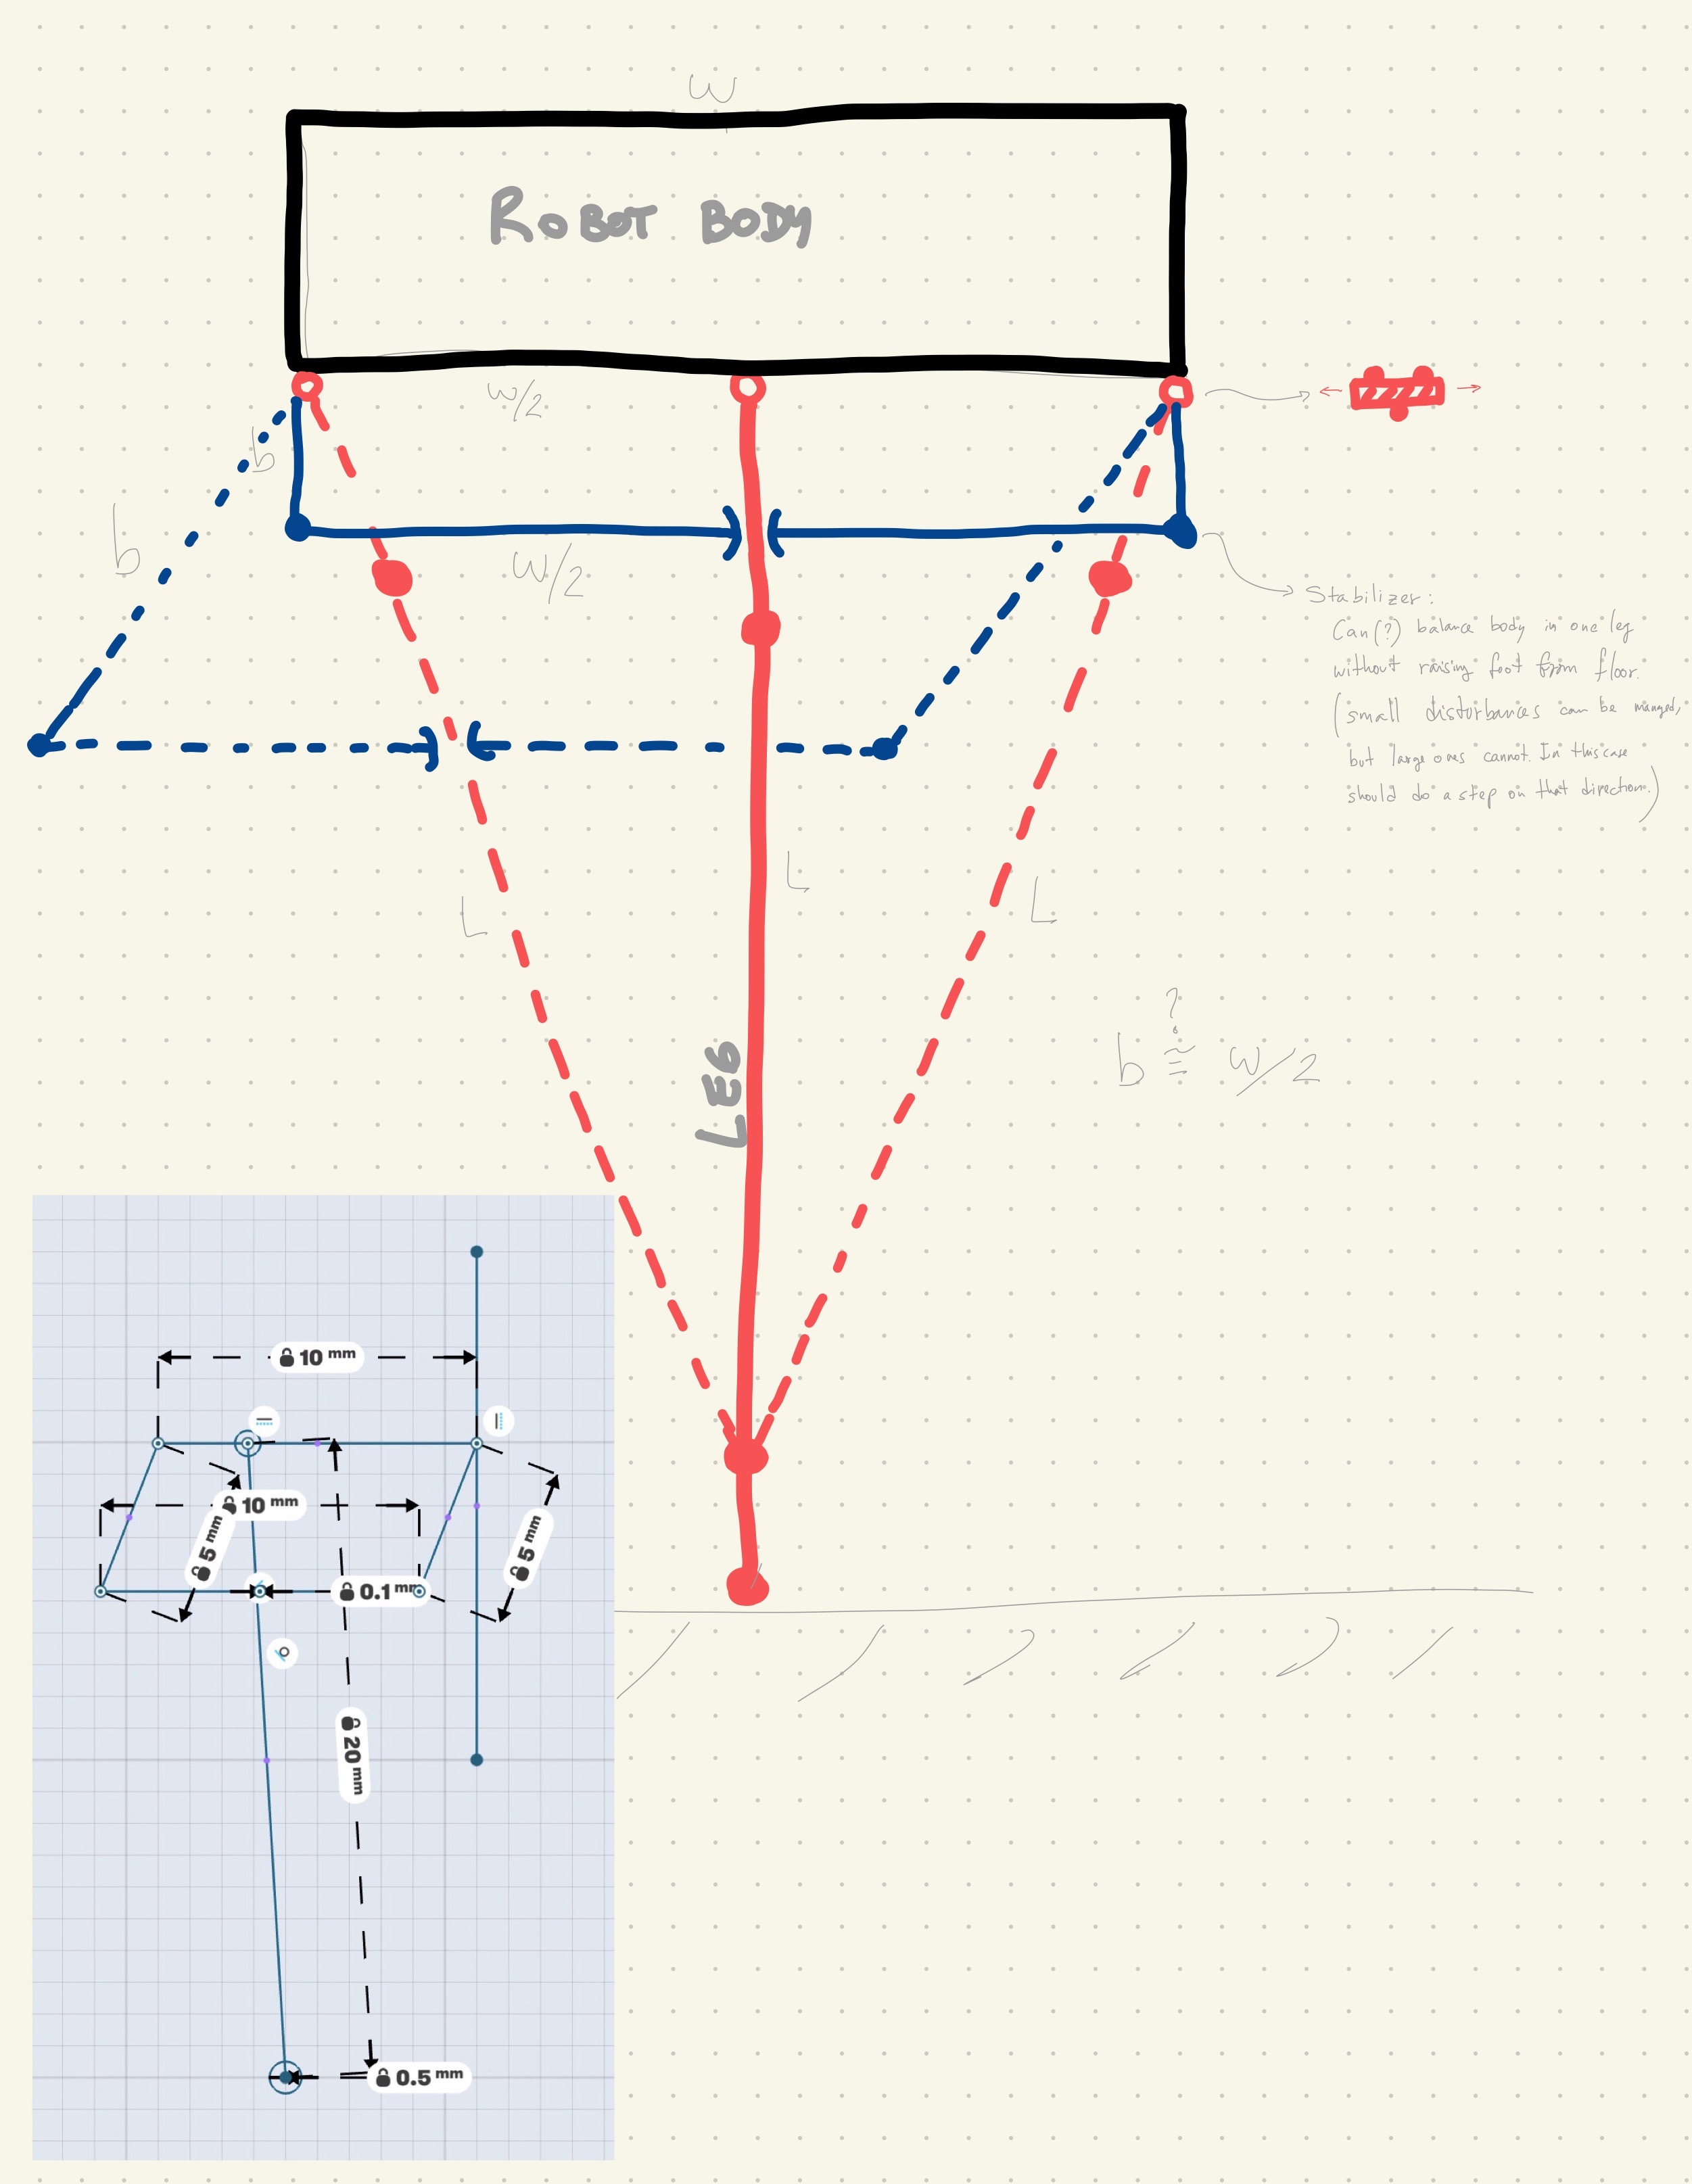 W
ROBOT BODY
W/2
b
b
W/2
Stabilizer:
Can(?) balance body in one leg
without raising foot from floor.
(small disturbances can be manged,
but large ones cannot. In this case
should do a step on that direction.)
L
L
L
?
b ≅ W/2
LEG
10 mm
10 mm
5 mm
5 mm
0.1 mm
20 mm
0.5 mm